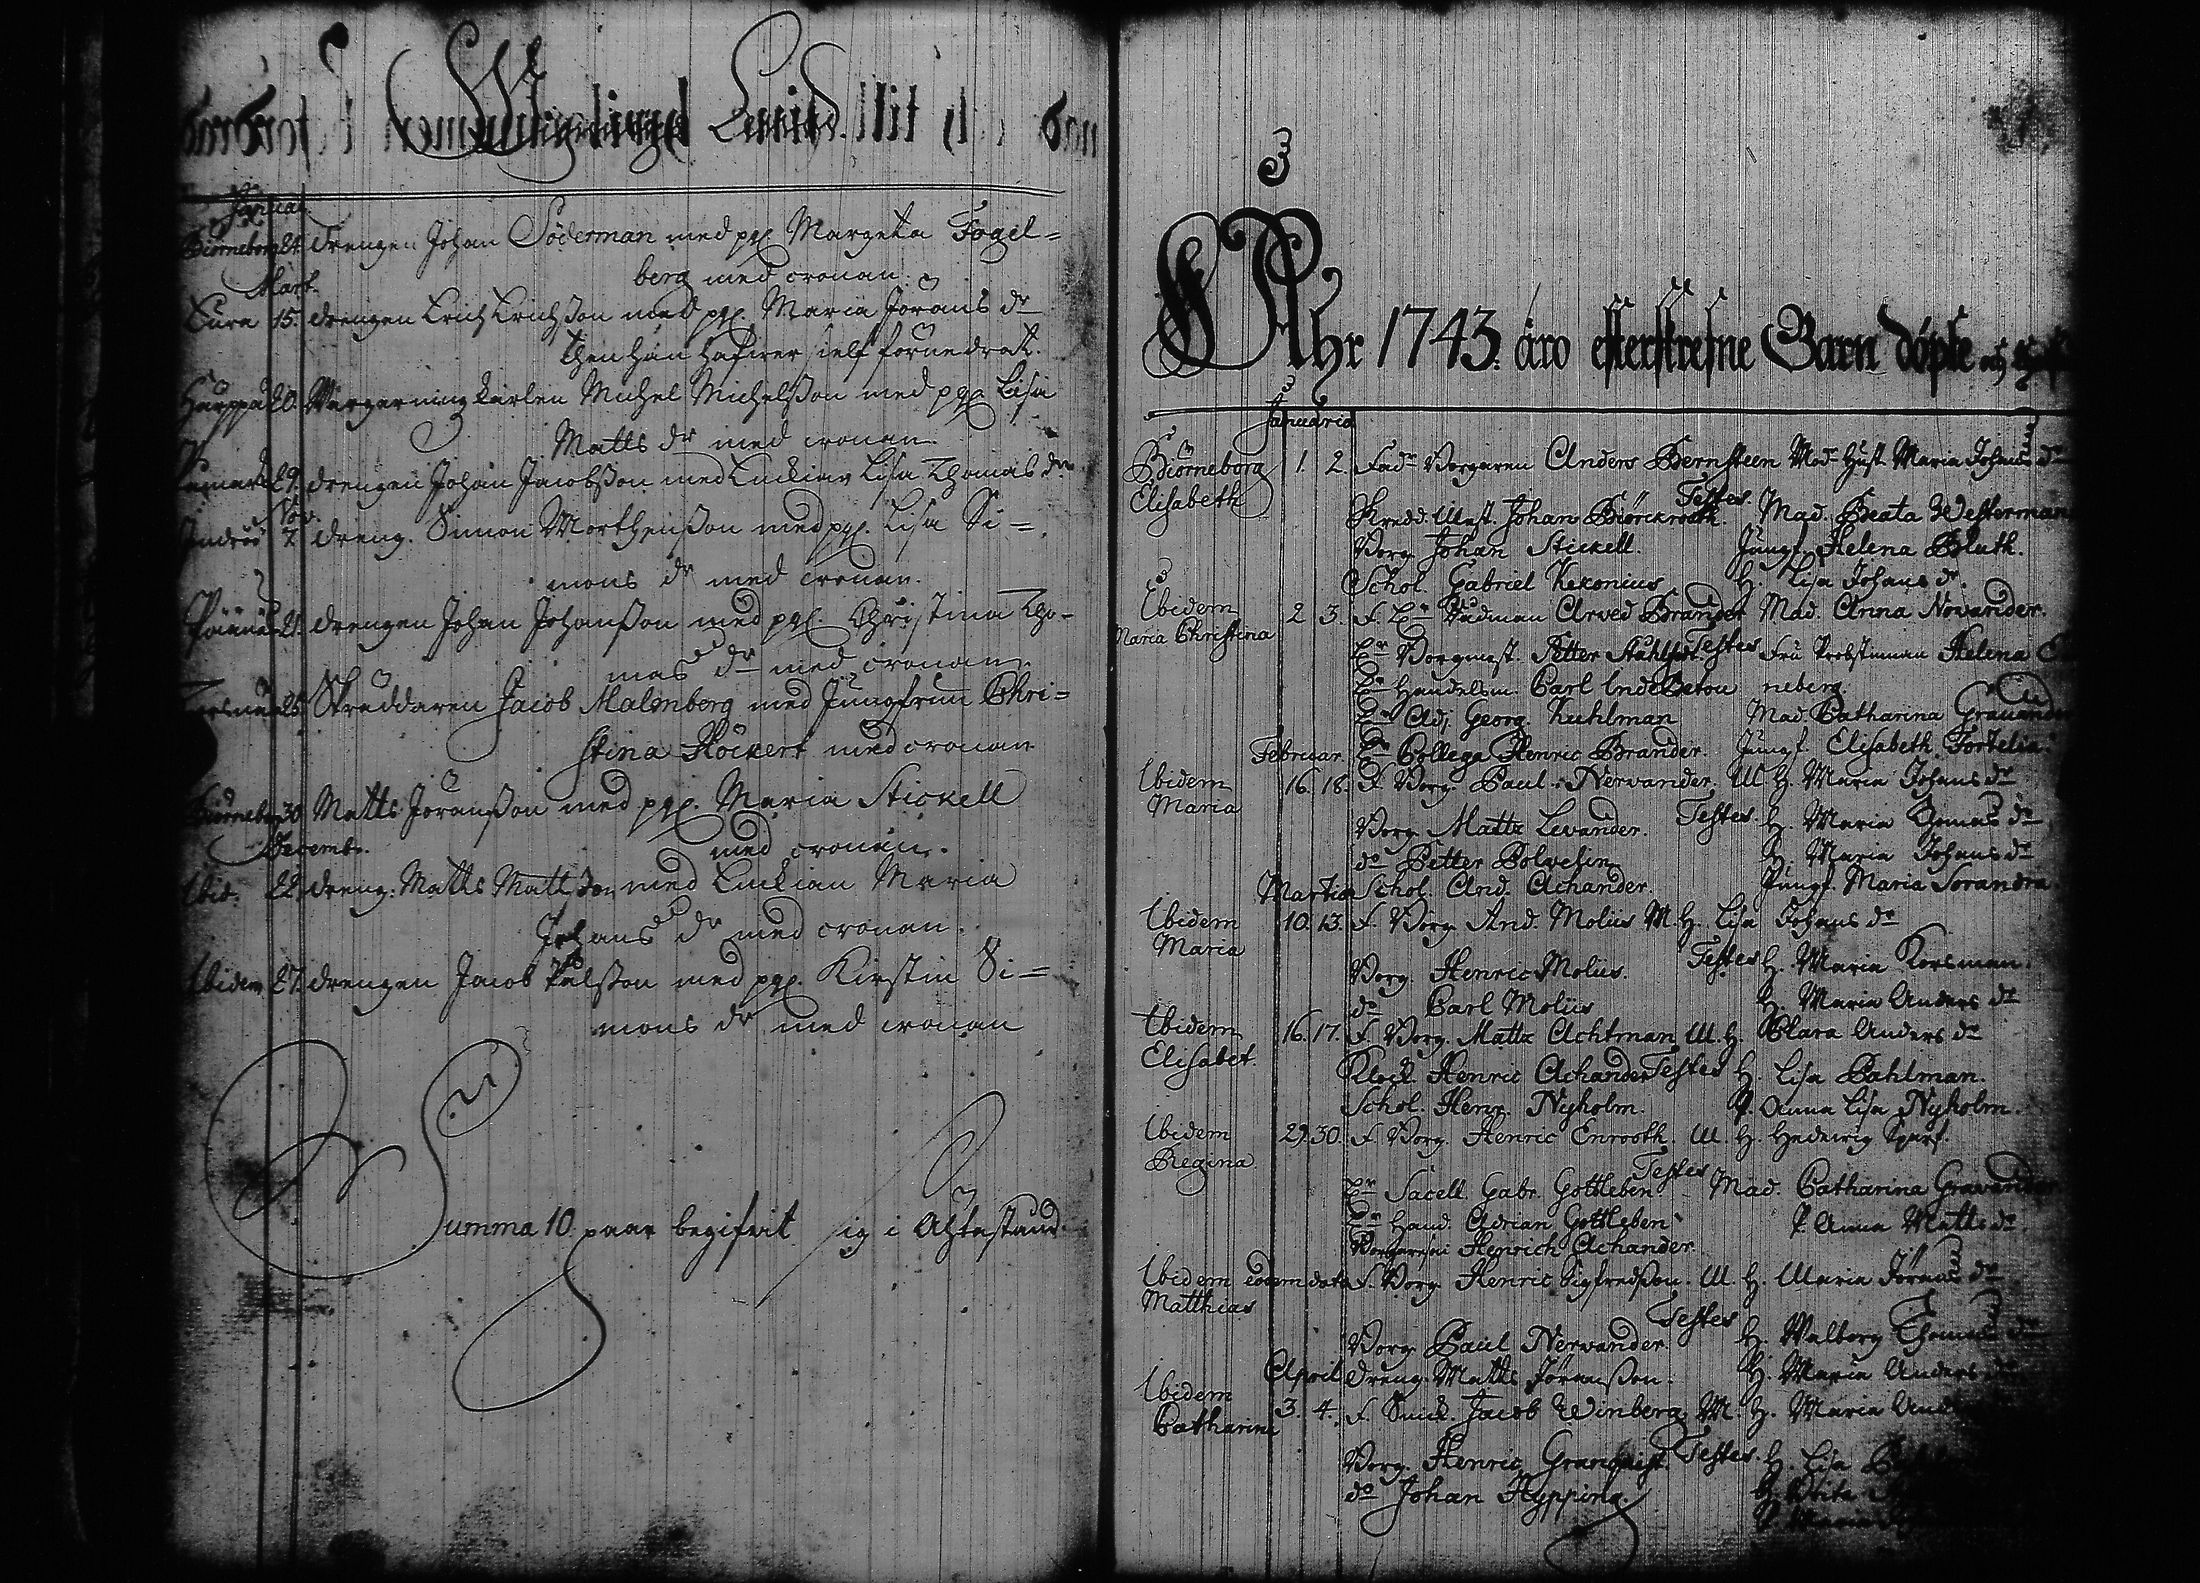 Wigningslängd
Januar.
Biörneborg 24. drengen Johan Söderman med pig. Margeta Fogel=
berg med cronan.
Mart.
Eura 15. drengen Erich Erichsson med pig. Maria Jörans dr
then han hafwer sielf förnedrat.
20. Michel Michelsson med pig. Lisa
Matts dr med cronan.
29. drengen Johan Jacobsson med Enckian Lisa Thomas dr
Nov.
7. dreng. Simon Morthensson med pig. Lisa Si=
mons dr med cronan.
21. drengen Johan Johansson med pig. Christina Tho-
mas dr med cronan.
25. Skreddaren Jacob Malmberg med Jungfrun Chri=
stina Höckert med cronan
Biörneborg 30. Matts Jöransson med pig. Maria Stickell
med cronan.
Decemb.
Ibid. 22. dreng. Matts Mattsson med Enckian Maria
Johans dr med cronan.
Ibidem 27. drengen Jacob Pålsson med pig. Kirstin Si=
mons dr med cronan
Summa 10. paar begifwit sig i Achtastånd.
Åhr 1743. äro efterskrefne Barn döpte och
Januario
Biörneborg 1. 2. Fadr Borgaren Anders Bernsteen Modr Hust. Maria Johans dr
Elisabeth Testes.
Johan Biörckroth. Mad. Beata Westerman
Borg. Johan Stickell. Jungf. Helena Bluth.
Schol. Gabriel Kexonius H. Lisa Johans dr.
Ibidem 2 3. F. Hr Rådman Arved Brander Mad. Anna Novander.
Maria Christina Testes
Hr Borgmest. Petter Fru Probstinnan Helena
Hr Handelsm. Carl neberg
Hr Adj. Georg. Kuhlman Mad. Catharina Gravander
Februar. Hr Collega Henric Brander. Jungf. Elisabeth Fortelia.
Ibidem 16. 18. F. Borg. Paul Nervander, M. H. Maria Johans dr
Maria Testes.
Borg. Matts Levander. H. Maria Thomas dr
do Petter Bolvelin H. Maria Johans dr
Martio Schol. And. Achander. Jungf. Maria Sorandra.
Ibidem 10. 13. F. Borg. And. Molius M. H. Lisa Johans dr
Maria Testes
Borg. Henric Molius. H. Maria Korsman.
do Carl Molius H. Maria Anders dr
Ibidem 16. 17. F. Borg. Matts Achtman, M. H. Clara Anders dr
Elisabet. Testes
Klock. Henric Achander H. Lisa Bahlman.
Schol. Henr. Nyholm. P. Anna Lisa Nyholm.
Ibidem 29. 30. F. Borg. Henric Enrooth. M. H. Hedewig
Regina Testes
Hr Sacell. Gabr. Gottleben Mad. Catharina Gravander
Hr Hand. Adrian Gottleben P. Anna Matts dr.
Henrich Achander.
Ibidem eodem dato F. Borg. Henric Sigfredsson. M. H. Maria Jörans dr
Matthias Testes
Borg. Paul Nervander H. Walborg Thomas dr
April dreng Matts Jöransson. H. Maria Anders dr
Ibidem 3. 4. F. Jacob Winberg. M. H. Maria
Catharina Testes.
Borg. Henric Granquist. H. Lisa
do Johan Hypping.